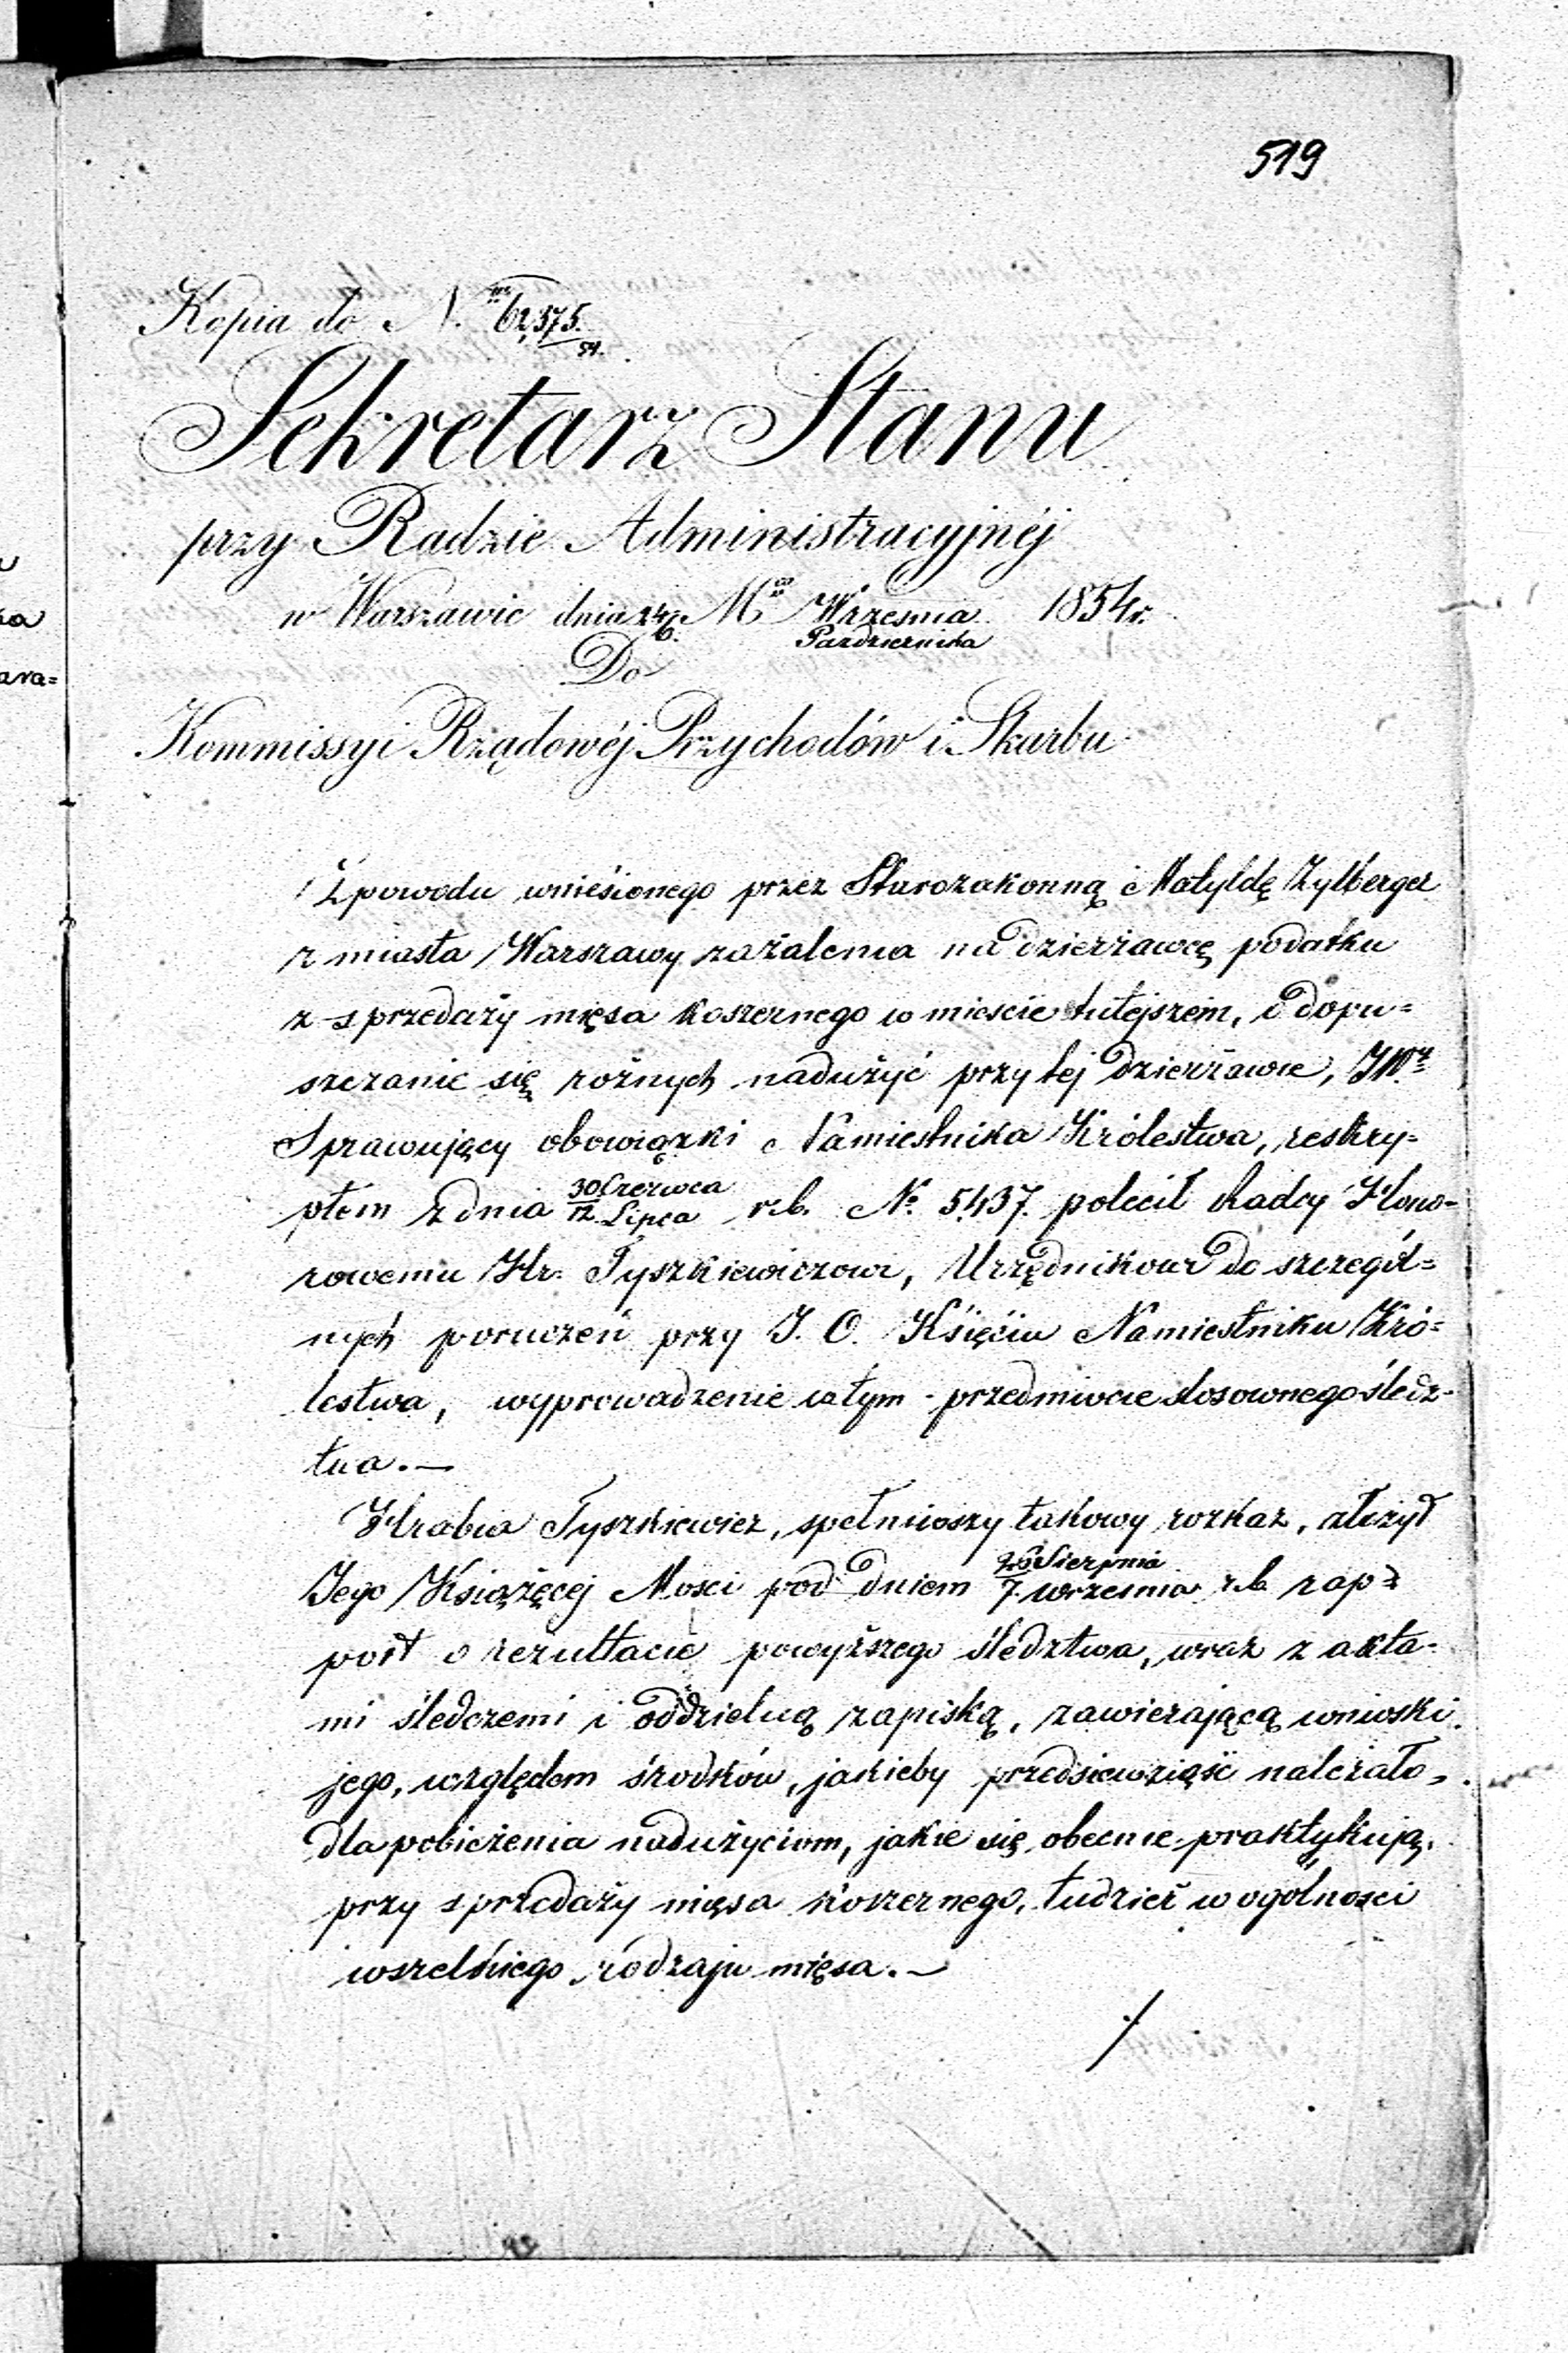 519
Kopia do N.ru 62,575.
54.
Sekretarz Stanu
przy Radzie Administracyjnéj
w Warszawie dnia 24/6. Mca Września 1854 r.
Pazdziernika
Do
Kommissyi Rządowéj Przychodów i Skarbu
Z powodu wnieśionego przez Starozakonną Matyldę Zylberger
z miasta Warszawy zażalenia na dzierżawcę podatku
z sprzedaży mięsa koszernego w mieście tutejszem, o dopu=
szczanie się rożnych nadużyć przy tej dzierżawie,
Sprawujący obowiązki Namiestnika Królestwa, reskry=
ptem z dnia 30 Czerwca / 12 Lipca r.b. No 5437. polecił Radcy Hono=
rowemu Hr. Tyszkiewiczowi, Urzędnikowi do szczegól=
nych poruczeń przy J. O. Kśięćiu Namiestniku Kró=
lestwa, wyprowadzenie w tym przedmiocie stosownego śledz=
twa.—
Hrabia Tyszkiewicz, spełniwszy takowy rozkaz, złożył
Jego Książęcej Mosci pod dniem 26 Sierpnia / 7. września r.b. rap=
port o rezultacie powyższego śledztwa, wraz z akta=
mi śledczemi i oddzielną zapiską, zawierającą wnioski
jego, względem środków, jakieby przedsiewziąść należało
dla pobieżenia nadużyciom, jakie się obecnie praktykują,
przy sprzedaży mięsa koszernego, tudzież w ogólnosci
wszelkiego rodzaju mięsa.—
/